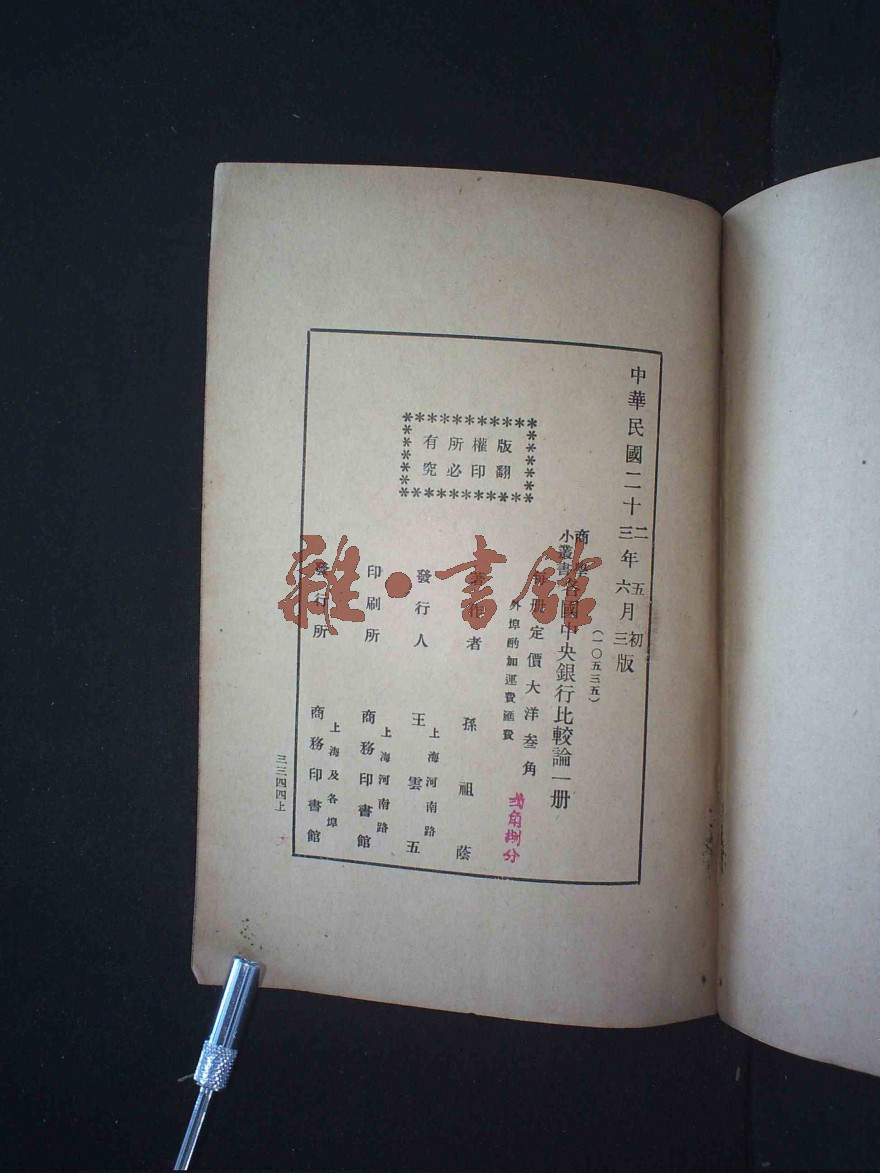 中華民國二十二三年五六月初三版
(一〇五三五)
商學
小叢書
各國中央銀行比較論一册
每册定價大洋叁角
外埠酌加運費匯費
弍角捌分
版權所有
翻印必究
著作者 孫祖蔭
上海河南路
發行人 王雲五
上海河南路
印刷所 商務印書館
上海及各埠
發行所 商務印書館
三三四四上
雜·書館